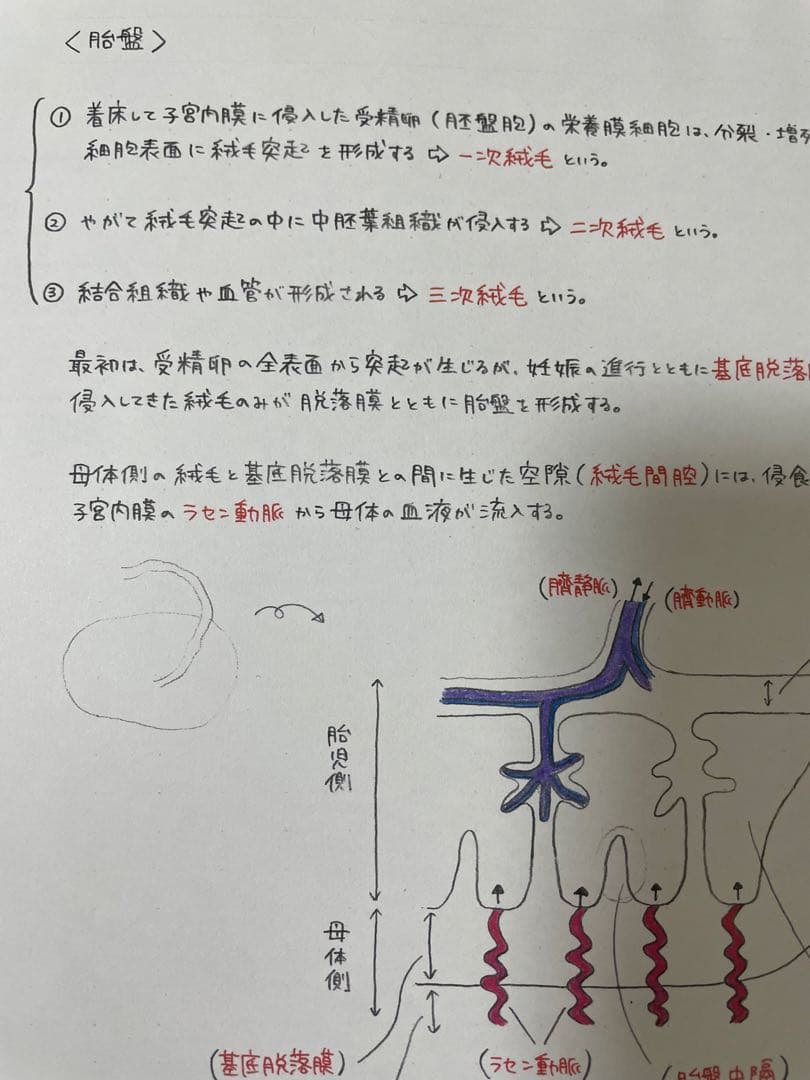 <胎盤>
① 着床して子宮内膜に侵入した受精卵(胚盤胞)の栄養膜細胞は、分裂・増
細胞表面に絨毛突起を形成する ⇨ 一次絨毛 という。
② やがて絨毛突起の中に中胚葉組織が侵入する ⇨ 二次絨毛 という。
③ 結合組織や血管が形成される ⇨ 三次絨毛 という。
最初は、受精卵の全表面から突起が生じるが、妊娠の進行とともに基底脱落
侵入してきた絨毛のみが脱落膜とともに胎盤を形成する。
母体側の絨毛と基底脱落膜との間に生じた空隙(絨毛間腔)には、侵食
子宮内膜のラセン動脈から母体の血液が流入する。
(臍静脈)
(臍動脈)
胎児側
母体側
(基底脱落膜)
(ラセン動脈)
(胎盤中隔)